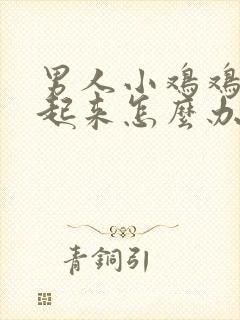 男人小鸡鸡
起来怎麼办
青銅引